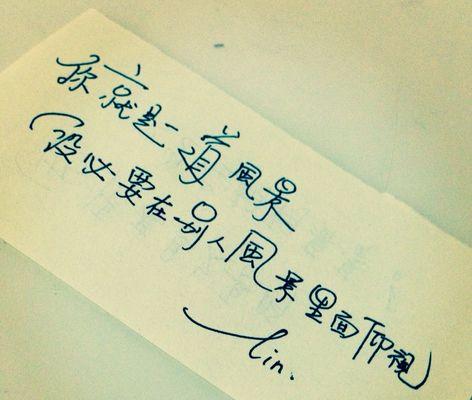 你就是一道風景
(没必要在别人風景里面仰視)
lin.